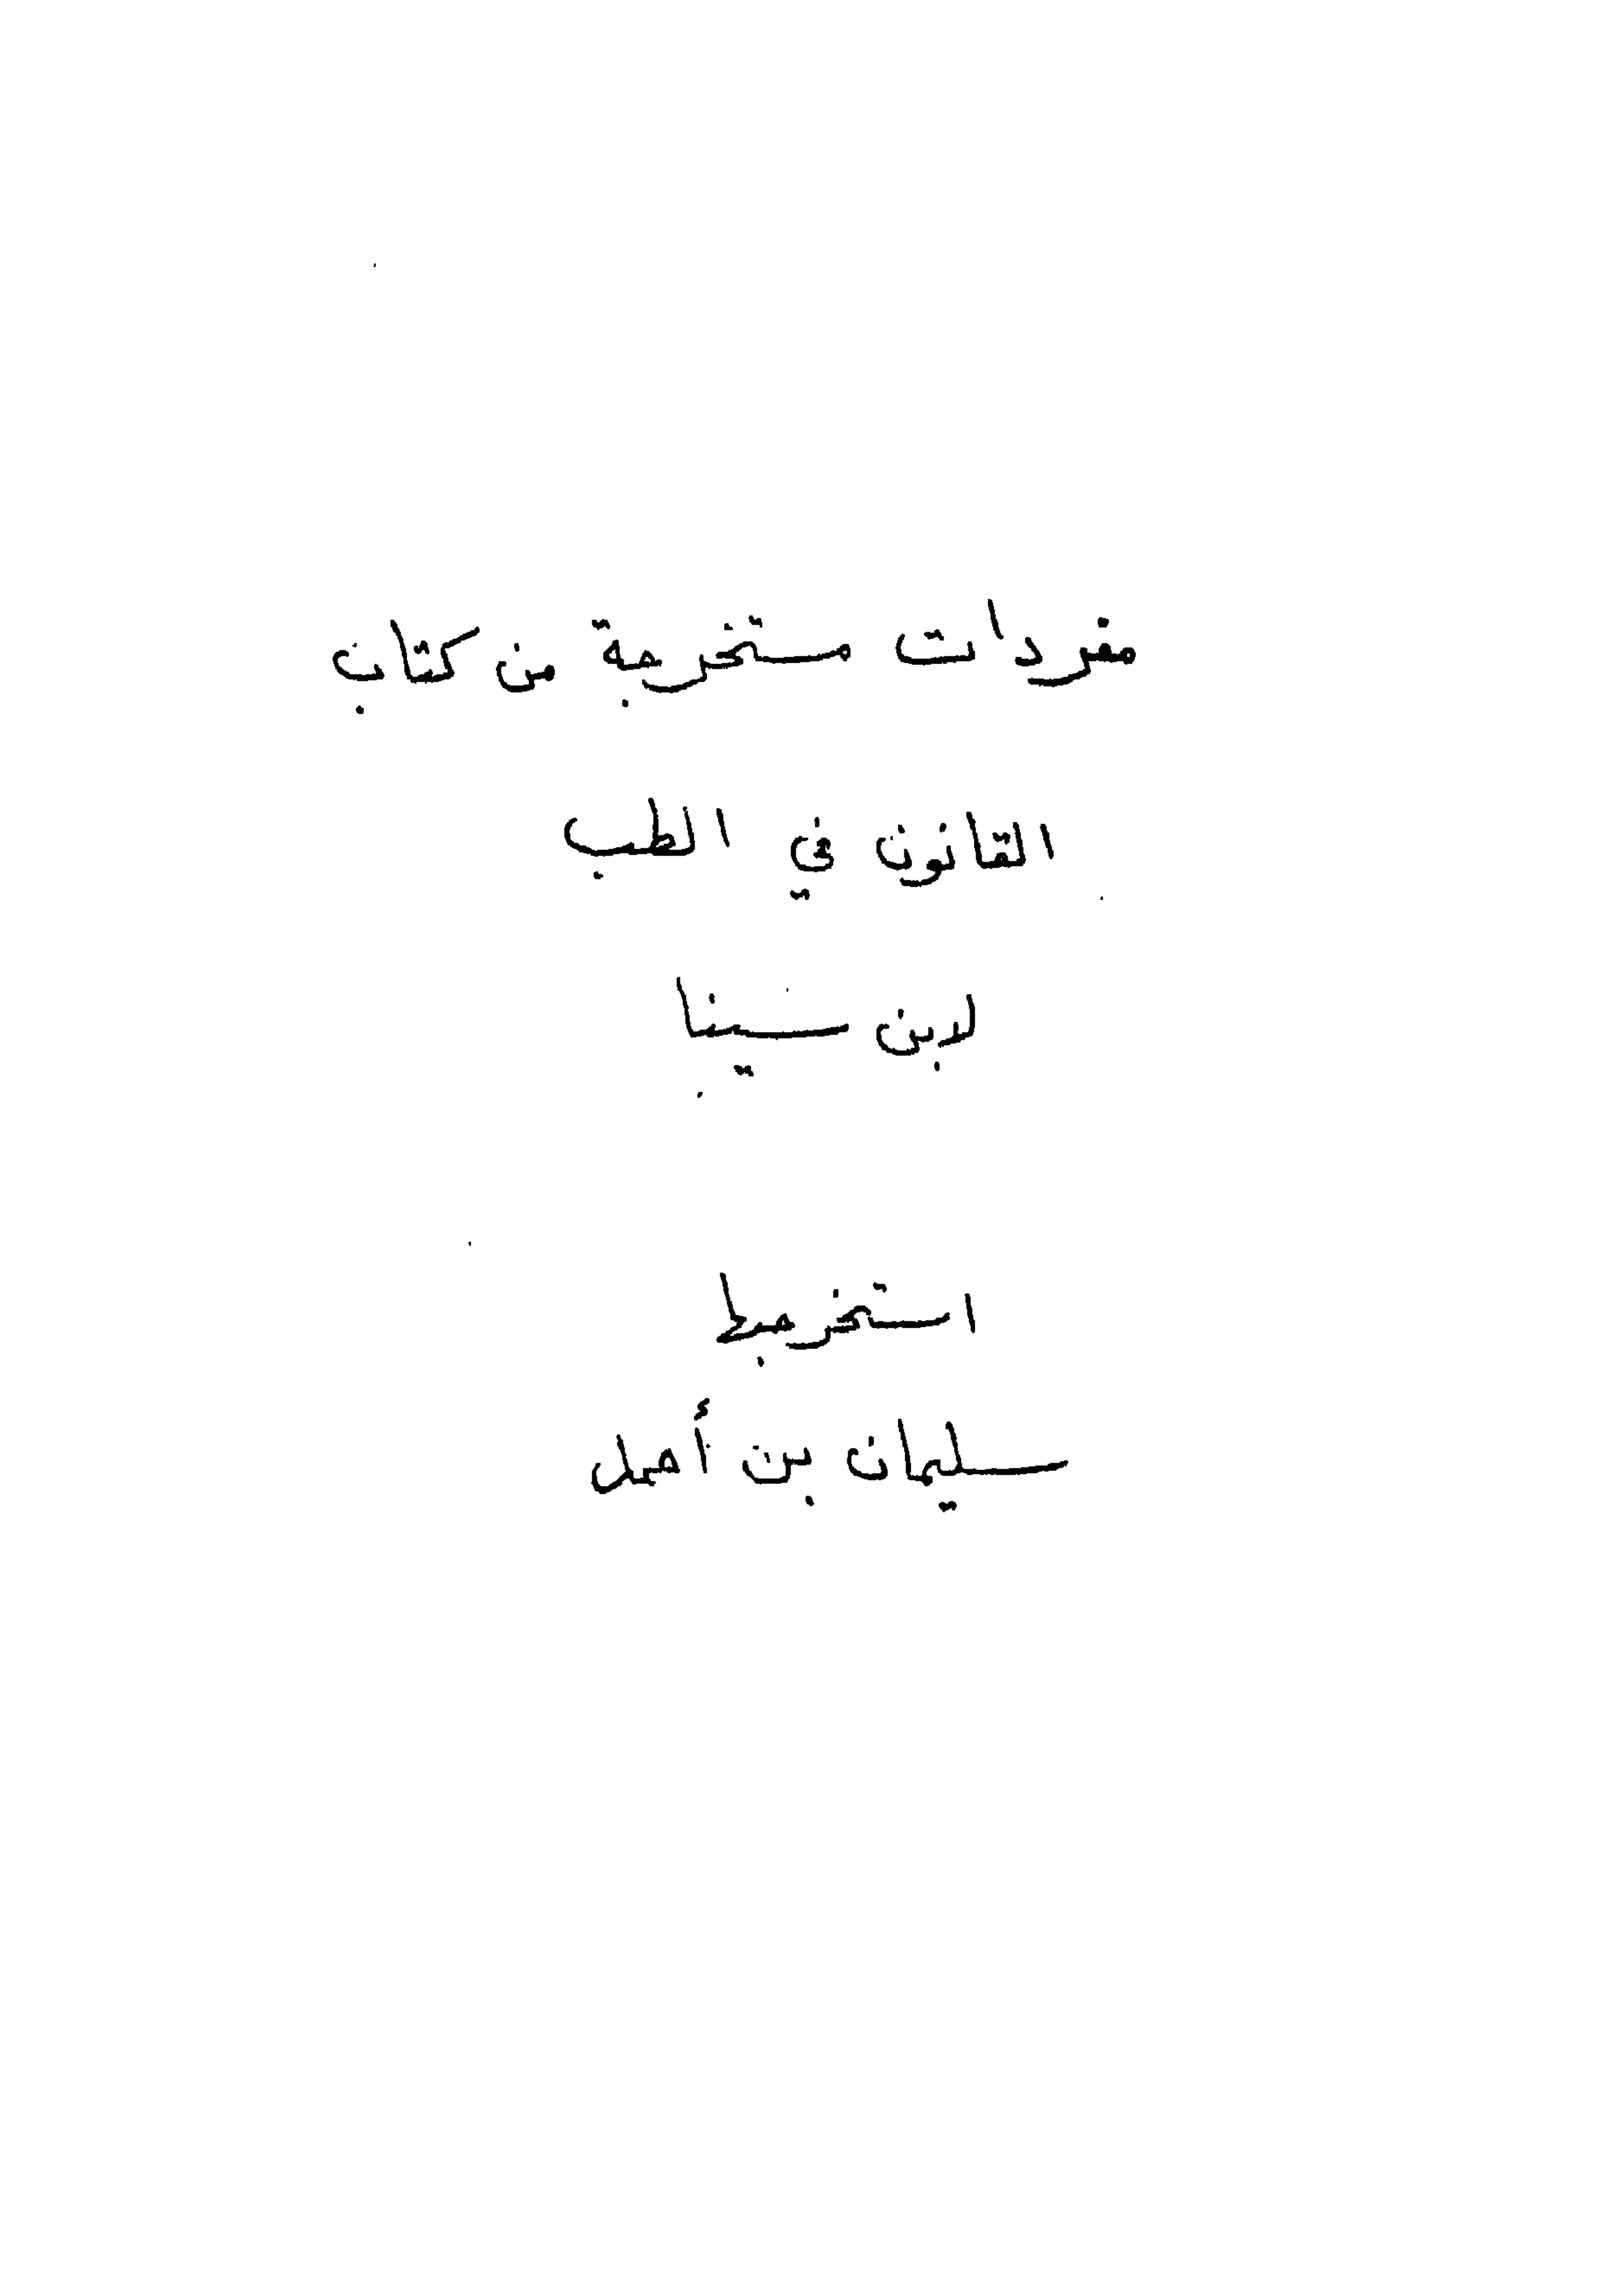 مفردات مستخرجة من كتاب
القانون في الطب
لابن سينا
استخرجها
سليمان بن أحمد